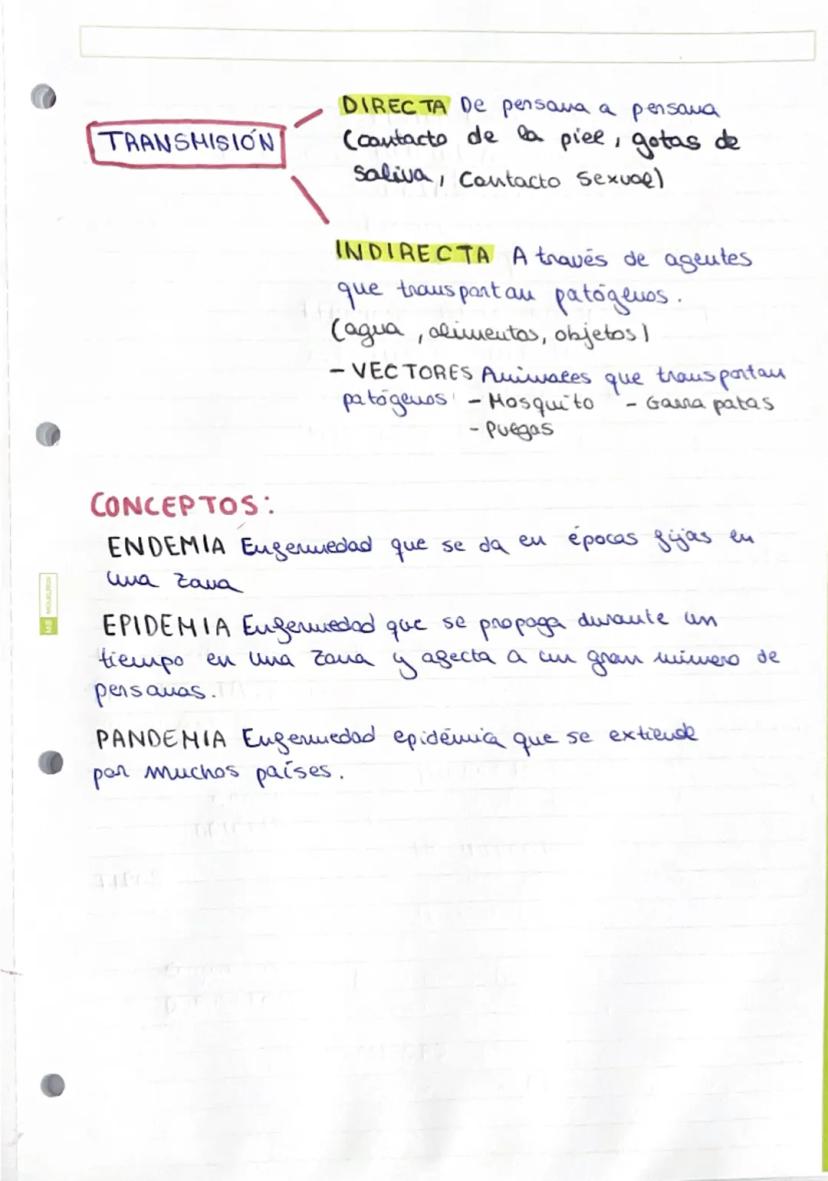 DIRECTA De persona a persona
TRANSMISIÓN
(contacto de la piel, gotas de
saliva, contacto sexual)
INDIRECTA A través de agentes
que transportan patógenos.
(agua, alimentos, objetos)
- VECTORES Animales que transportan
patógenos: - Mosquito - Garrapatas
- Pulgas
CONCEPTOS:
ENDEMIA Enfermedad que se da en épocas fijas en
una zona
EPIDEMIA Enfermedad que se propaga durante un
tiempo en una zona y afecta a un gran número de
personas.
PANDEMIA Enfermedad epidémica que se extiende
por muchos países.